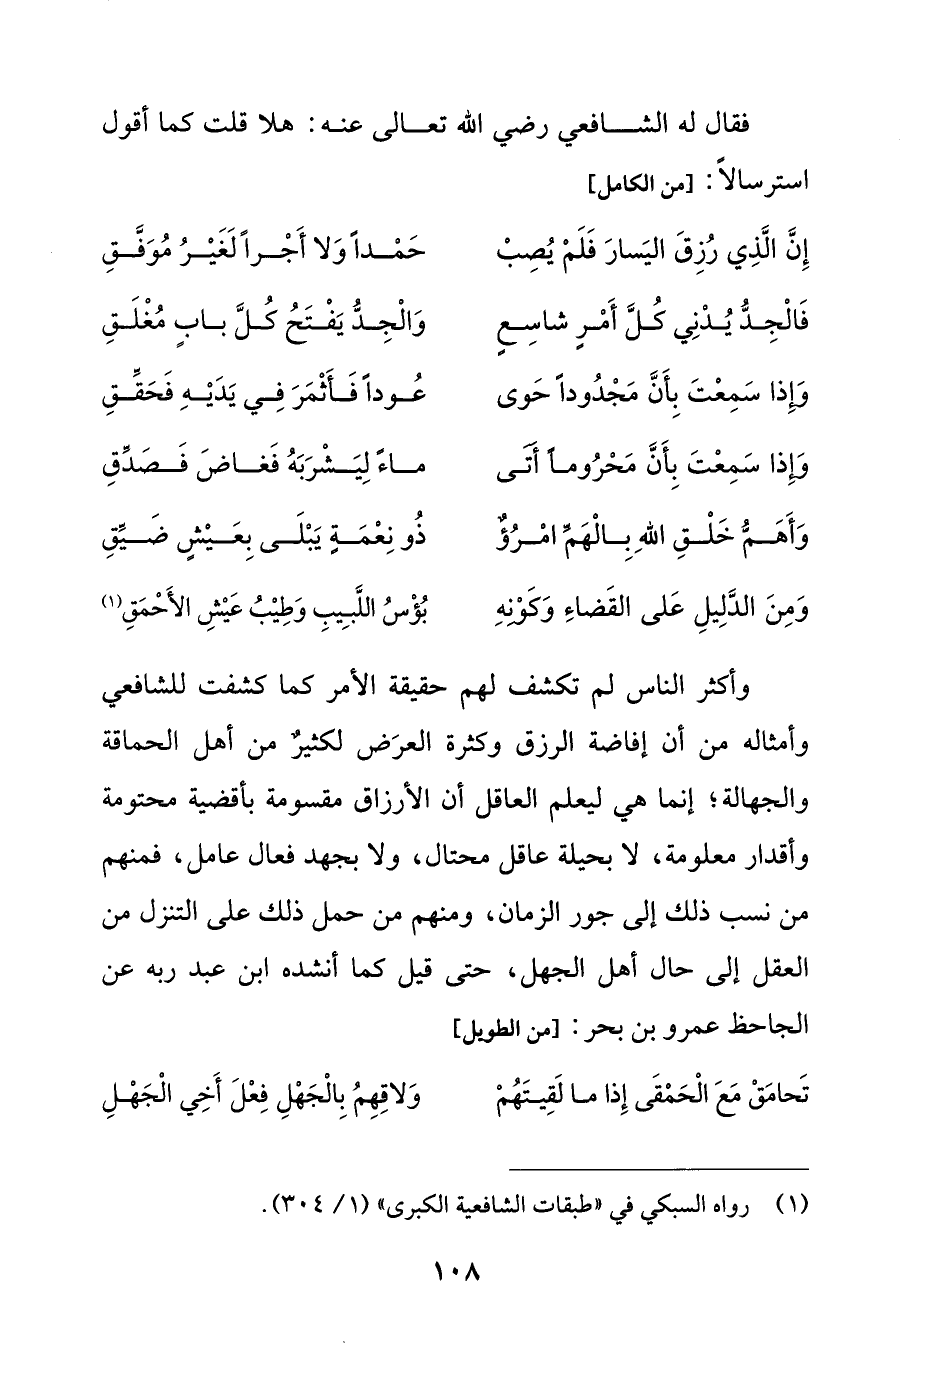 فقال له الشافعي رضي الله تعالى عنه: هلا قلت كما أقول
استرسالاً: [من الكامل]
إِنَّ الَّذِي رُزِقَ اليَسارَ فَلَمْ يُصِبْ حَمْداً وَلا أَجْراً لَغَيْرُ مُوَفَّقِ
فَالْجِدُّ يُدْنِي كُلَّ أَمْرٍ شاسِعٍ وَالْجِدُّ يَفْتَحُ كُلَّ بابٍ مُغْلَقِ
وَإِذا سَمِعْتَ بِأَنَّ مَجْدُوداً حَوى عُوداً فَأَثْمَرَ فِي يَدَيْهِ فَحَقِّقِ
وَإِذا سَمِعْتَ بِأَنَّ مَحْرُوماً أَتَى ماءً لِيَشْرَبَهُ فَغاضَ فَصَدِّقِ
وَأَهَمُّ خَلْقِ اللهِ بِالْهَمِّ امْرُؤٌ ذُو نِعْمَةٍ يَبْلَى بِعَيْشٍ ضَيِّقِ
وَمِنَ الدَّلِيلِ عَلى القَضاءِ وَكَوْنِهِ بُؤْسُ اللَّبِيبِ وَطِيْبُ عَيْشِ الأَحْمَقِ(١)
وأكثر الناس لم تكشف لهم حقيقة الأمر كما كشفت للشافعي
وأمثاله من أن إفاضة الرزق وكثرة العرَض لكثيرٌ من أهل الحماقة
والجهالة؛ إنما هي ليعلم العاقل أن الأرزاق مقسومة بأقضية محتومة
وأقدار معلومة، لا بحيلة عاقل محتال، ولا بجهد فعال عامل، فمنهم
من نسب ذلك إلى جور الزمان، ومنهم من حمل ذلك على التنزل من
العقل إلى حال أهل الجهل، حتى قيل كما أنشده ابن عبد ربه عن
الجاحظ عمرو بن بحر: [من الطويل]
تَحامَقْ مَعَ الْحَمْقَى إِذا ما لَقِيتَهُمْ وَلاقِهِمُ بِالْجَهْلِ فِعْلَ أَخِي الْجَهْلِ
(١) رواه السبكي في «طبقات الشافعية الكبرى» (١/ ٣٠٤).
١٠٨